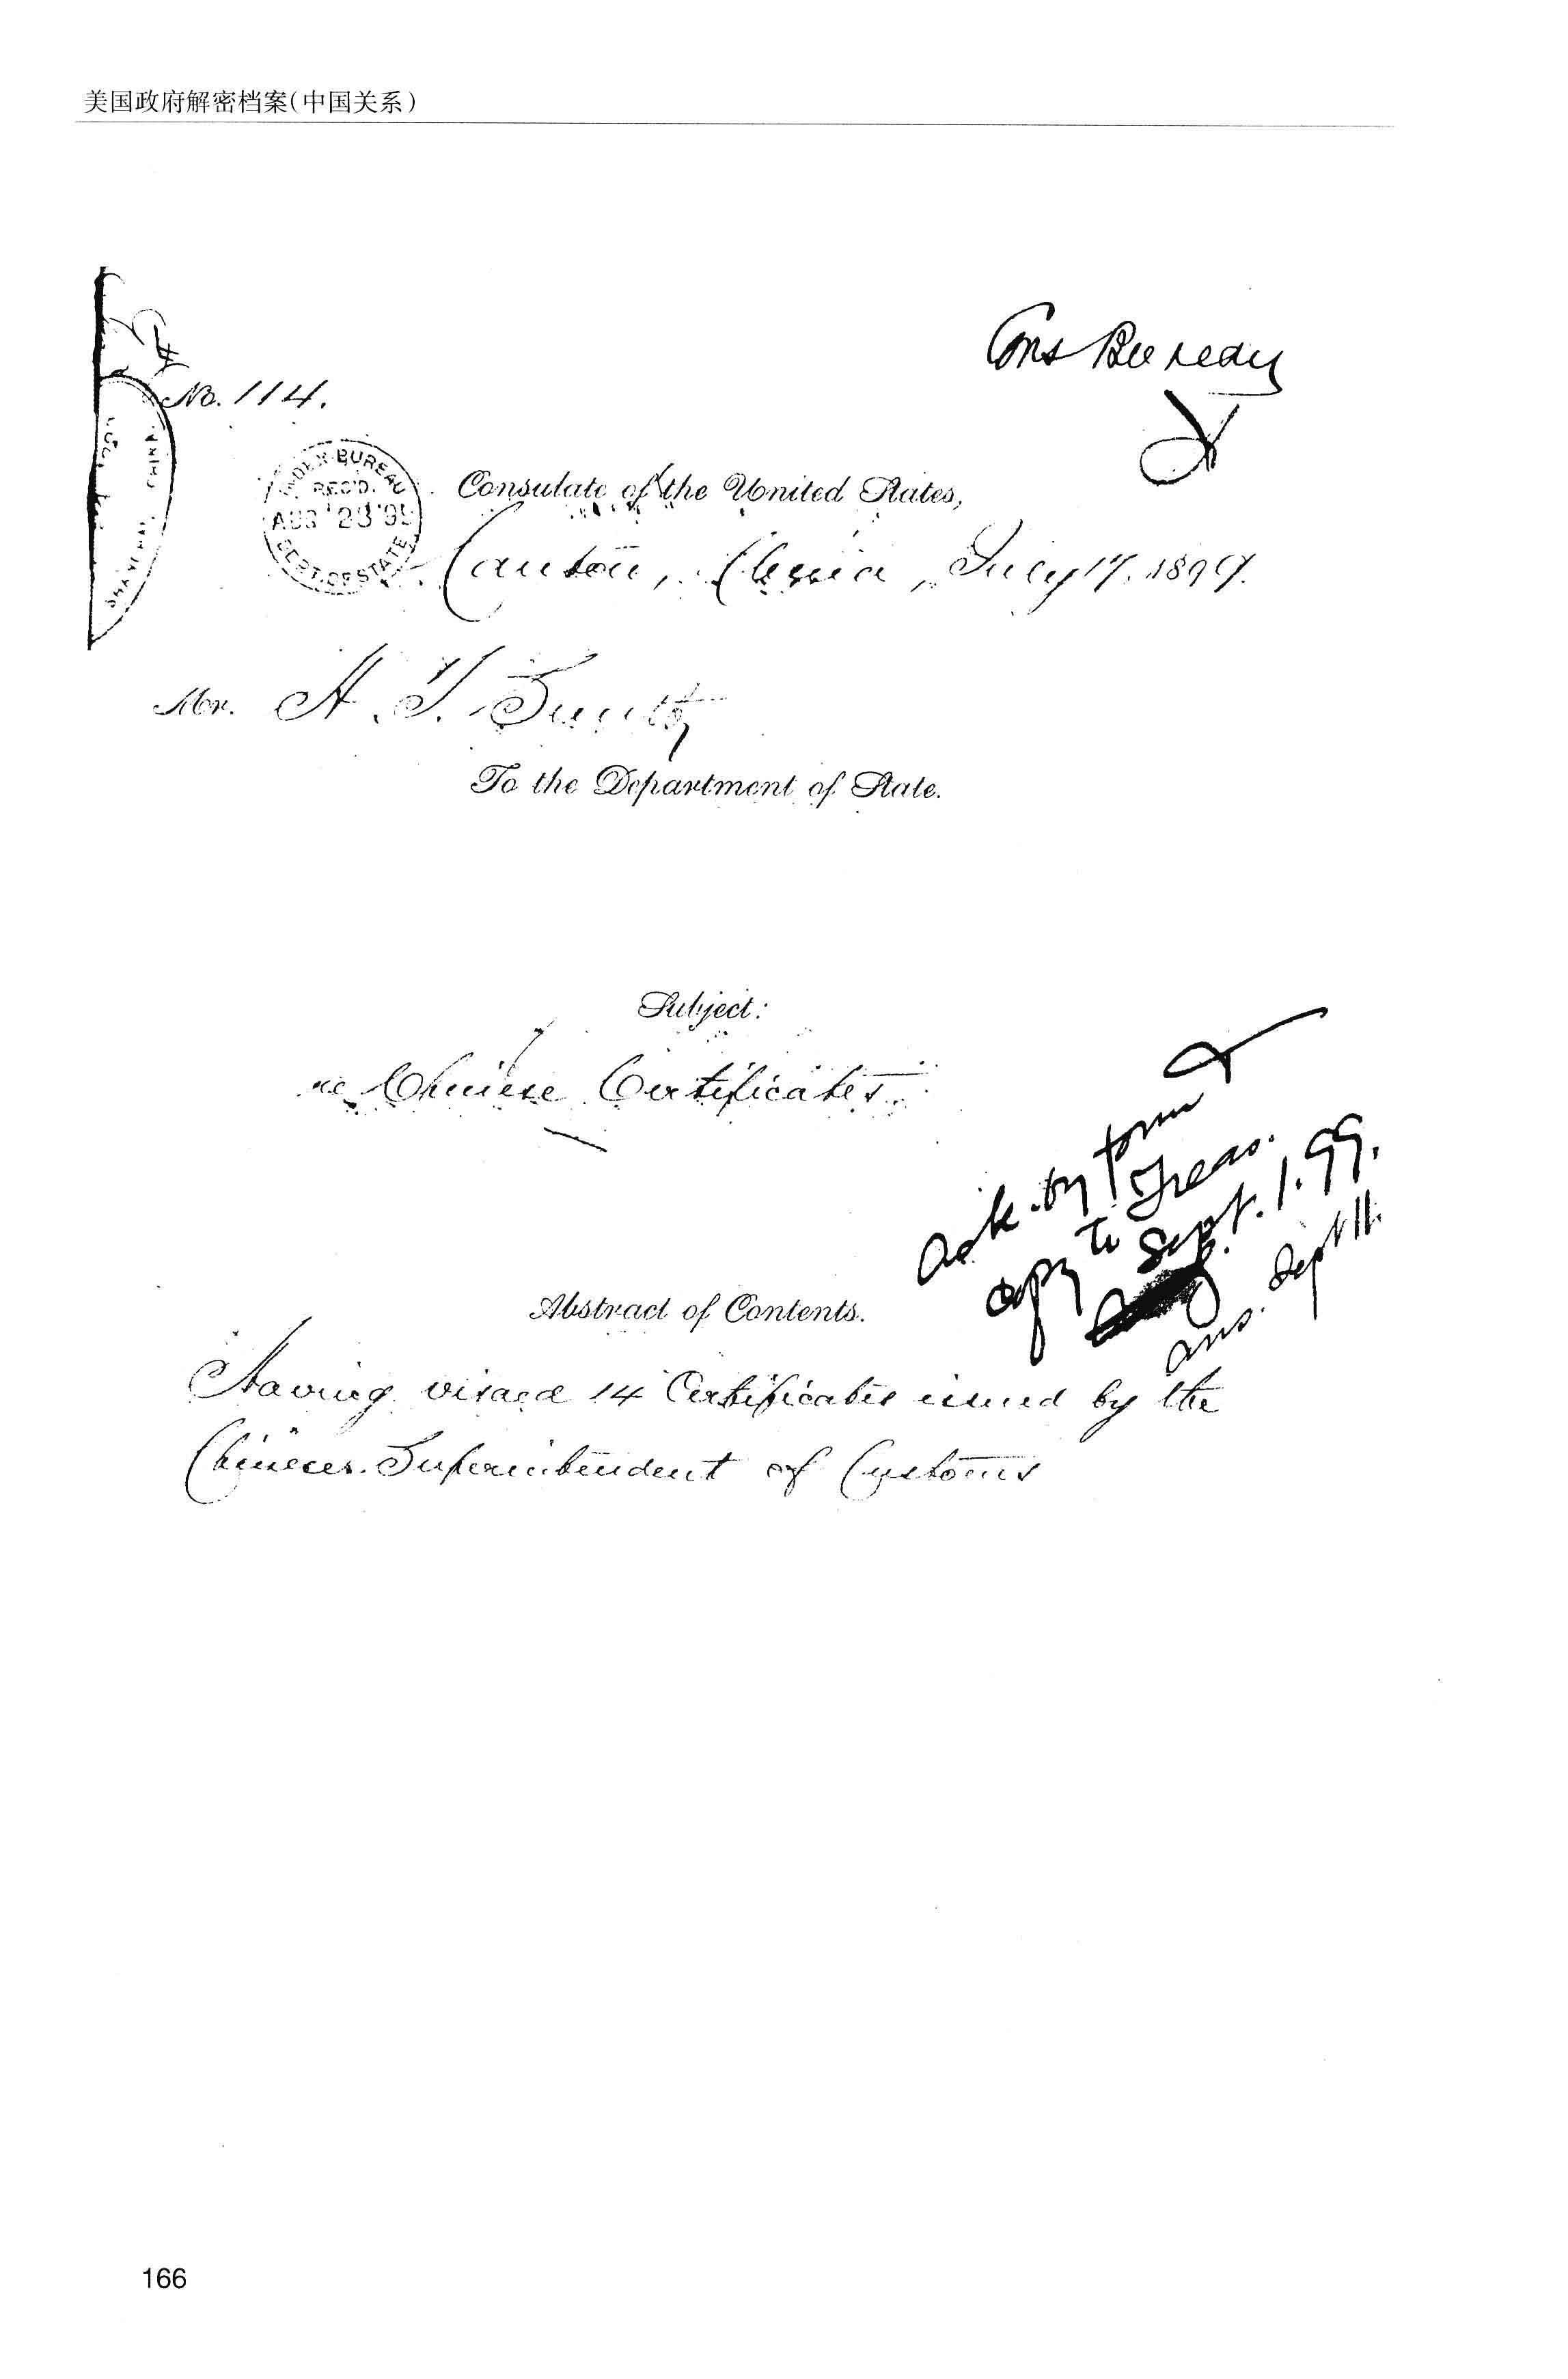 美国政府解密档案(中国关系)
Cons Bureau
No. 114.
INDEX BUREAU
REC'D.
AUG 28 '99
DEPT. OF STATE
Consulate of the United States,
Canton, China, July 17. 1899.
Mr. H. F.
To the Department of State.
Subject:
re Chinese Certificates.
Ack. by form
copy to Treas.
Sept. 1. 99.
ans. Sept 11.
Abstract of Contents.
Having visaed 14 Certificates issued by the
Chinese Superintendent of Customs
166